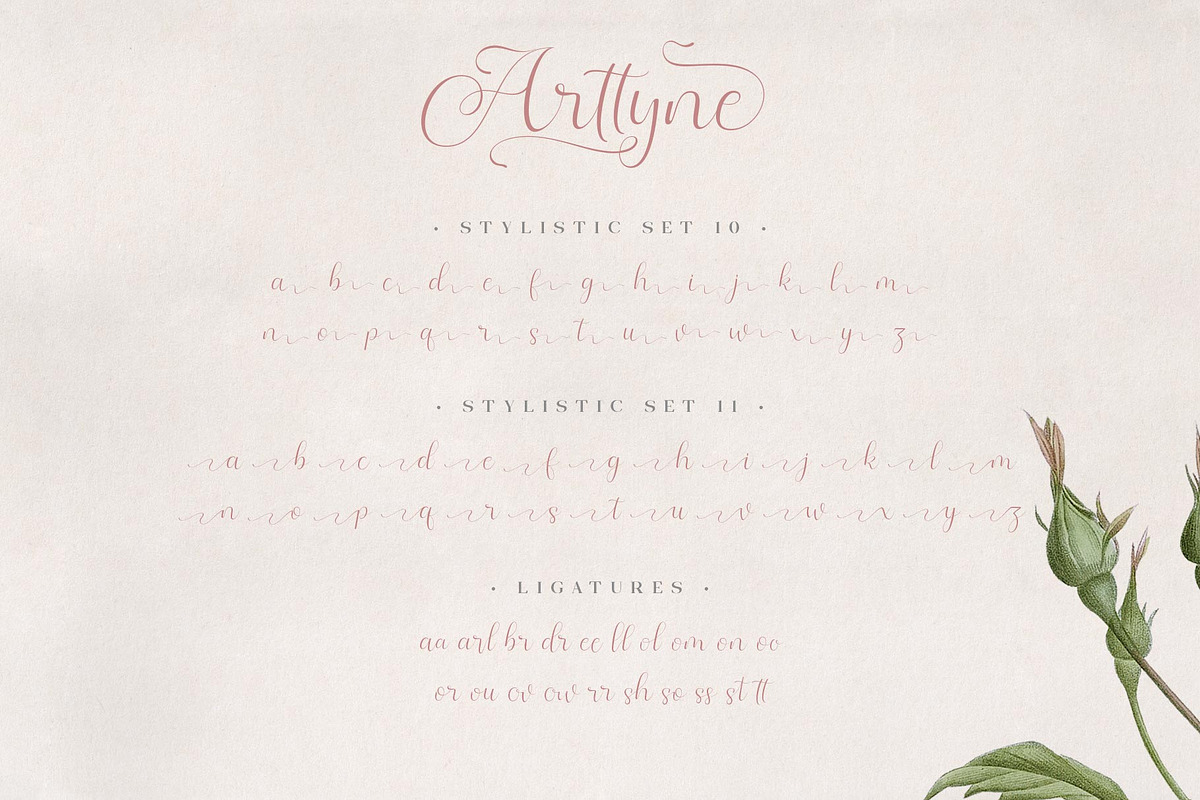 Arttyne
• STYLISTIC SET 10 •
a b c d e f g h i j k l m
n o p q r s t u v w x y z
• STYLISTIC SET 11 •
a b c d e f g h i j k l m
n o p q r s t u v w x y z
• LIGATURES •
aa arl br dr ee ll ol om on oo
or ou ov ow rr sh so ss st tt